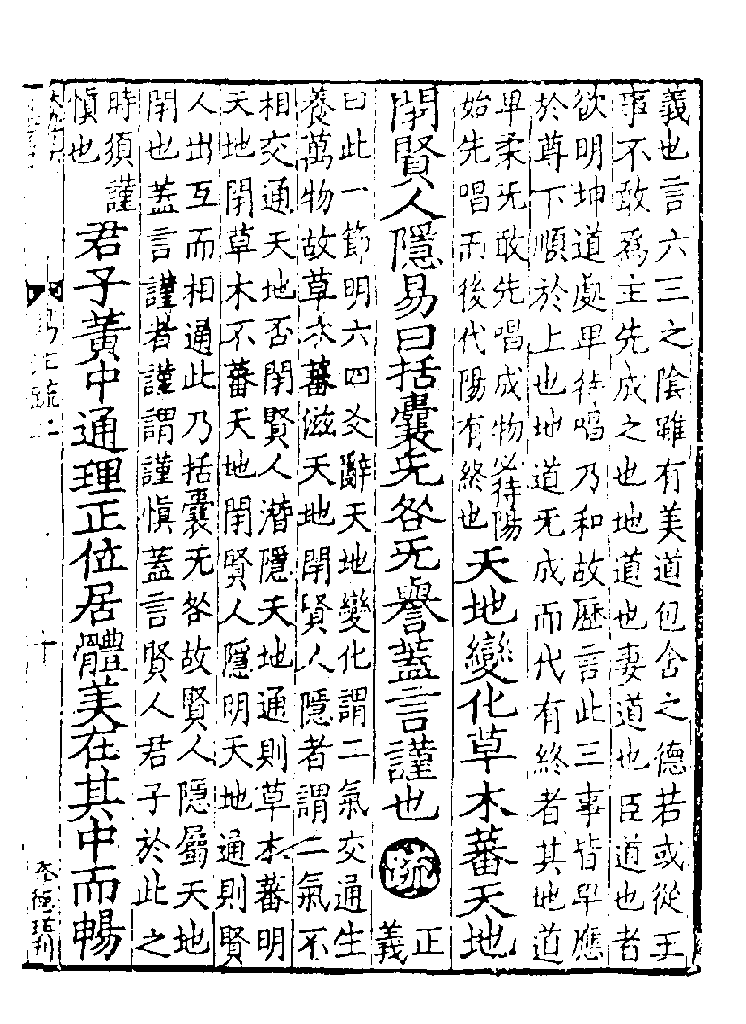 義也言六三之陰雖有美道包含之德若或從王
事不敢爲主先成之也地道也妻道也臣道也者
欲明坤道處卑待唱乃和故歷言此三事皆卑應
於尊下順於上也地道无成而代有終者其地道
卑柔无敢先唱成物必待陽
始先唱而後代陽有終也
天地變化草木蕃天地
閉賢人隱易曰括囊无咎无譽蓋言謹也疏
正
義
曰此一節明六四爻辭天地變化謂二氣交通生
養萬物故草木蕃滋天地閉賢人隱者謂二氣不
相交通天地否閉賢人潛隱天地通則草木蕃明
天地閉草木不蕃天地閉賢人隱明天地通則賢
人出互而相通此乃括囊无咎故賢人隱屬天地
閉也蓋言謹者謹謂謹慎蓋言賢人君子於此之
時須謹
慎也
君子黃中通理正位居體美在其中而暢
易疏二
十